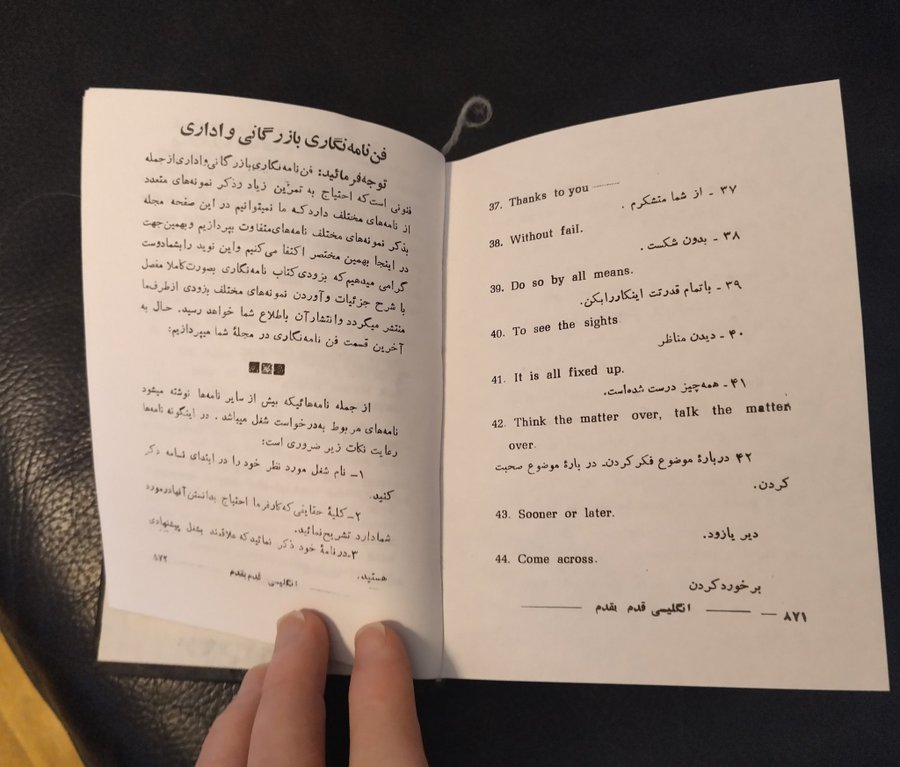 37. Thanks to you ........
۳۷ - از شما متشکرم .
38. Without fail.
۳۸ - بدون شکست .
39. Do so by all means.
۳۹ - باتمام قدرتت اینکاررابکن.
40. To see the sights
۴۰ - دیدن مناظر
41. It is all fixed up.
۴۱ - همه‌چیز درست شده‌است.
42. Think the matter over, talk the matter
over.
۴۲ دربارهٔ موضوع فکر کردن- در بارهٔ موضوع صحبت
کردن.
43. Sooner or later.
دیر یازود.
44. Come across.
برخورد کردن
۸۷۱ — انگلیسی قدم بقدم
فن نامه‌نگاری بازرگانی و اداری
توجه‌فرمائید: فن‌نامه‌نگاری‌بازرگانی‌واداری‌ازجمله
فنونی است‌که احتیاج به تمرین زیاد وذکر نمونه‌های متعدد
از نامه‌های مختلف داردکه ما نمیتوانیم در این صفحه مجله
بذکر نمونه‌های مختلف نامه‌های‌متفاوت بپردازیم و بهمین‌جهت
در اینجا بهمین مختصر اکتفا می‌کنیم واین نوید رابشمادوست
گرامی میدهیم‌که بزودی‌کتاب نامه‌نگاری بصورت‌کاملا مفصل
با شرح جزئیات وآوردن نمونه‌های مختلف بزودی ازطرف‌ما
منتشر میگردد وانتشارآن باطلاع شما خواهد رسید. حال به
آخرین قسمت فن نامه‌نگاری در مجلهٔ شما میپردازیم:
از جمله نامه‌هائیکه بیش از سایر نامه‌ها نوشته میشود
نامه‌های مربوط به‌درخواست شغل میباشد . در اینگونه نامه‌ها
رعایت نکات زیر ضروری است:
۱- نام شغل مورد نظر خود را در ابتدای نامه ذکر
کنید.
۲- کلیهٔ حقایقی‌که‌کارفرما احتیاج بدانستن‌آنهادرمورد
شمادارد تشریح‌نمائید.
۳-درنامهٔ خود ذکر نمائیدکه علاقمند بشغل پیشنهادی
هستید.
انگلیسی قدم بقدم ۸۷۲